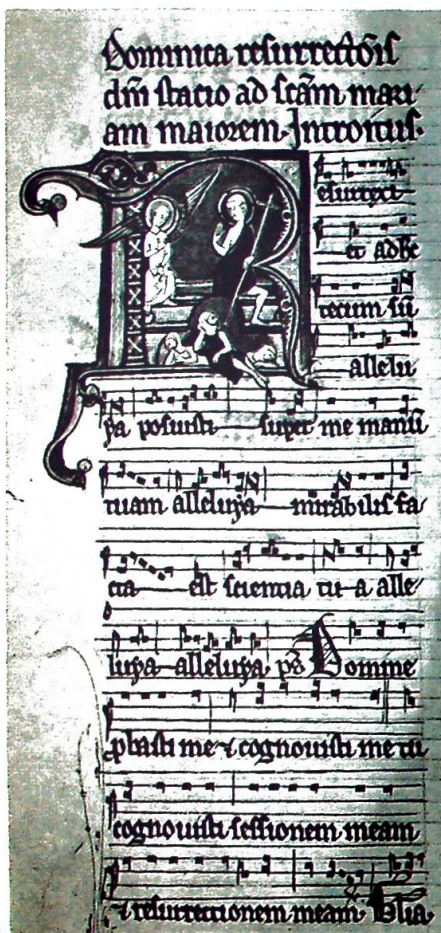 Dominica resurrectōis
dn̄i stacio ad sc̄am mari
am maiorem. Introitus.
Resurrexi
et adhc
tecum sū
allelu
ya posuisti super me manū
tuam alleluya mirabilis fa
cta est scientia tu a alle
luya alleluya ps̄ Domine
ꝓbasti me ⁊ cognouisti me tu
cognouisti sessionem meam
⁊ resurrectionem meam. Gl̄ia.